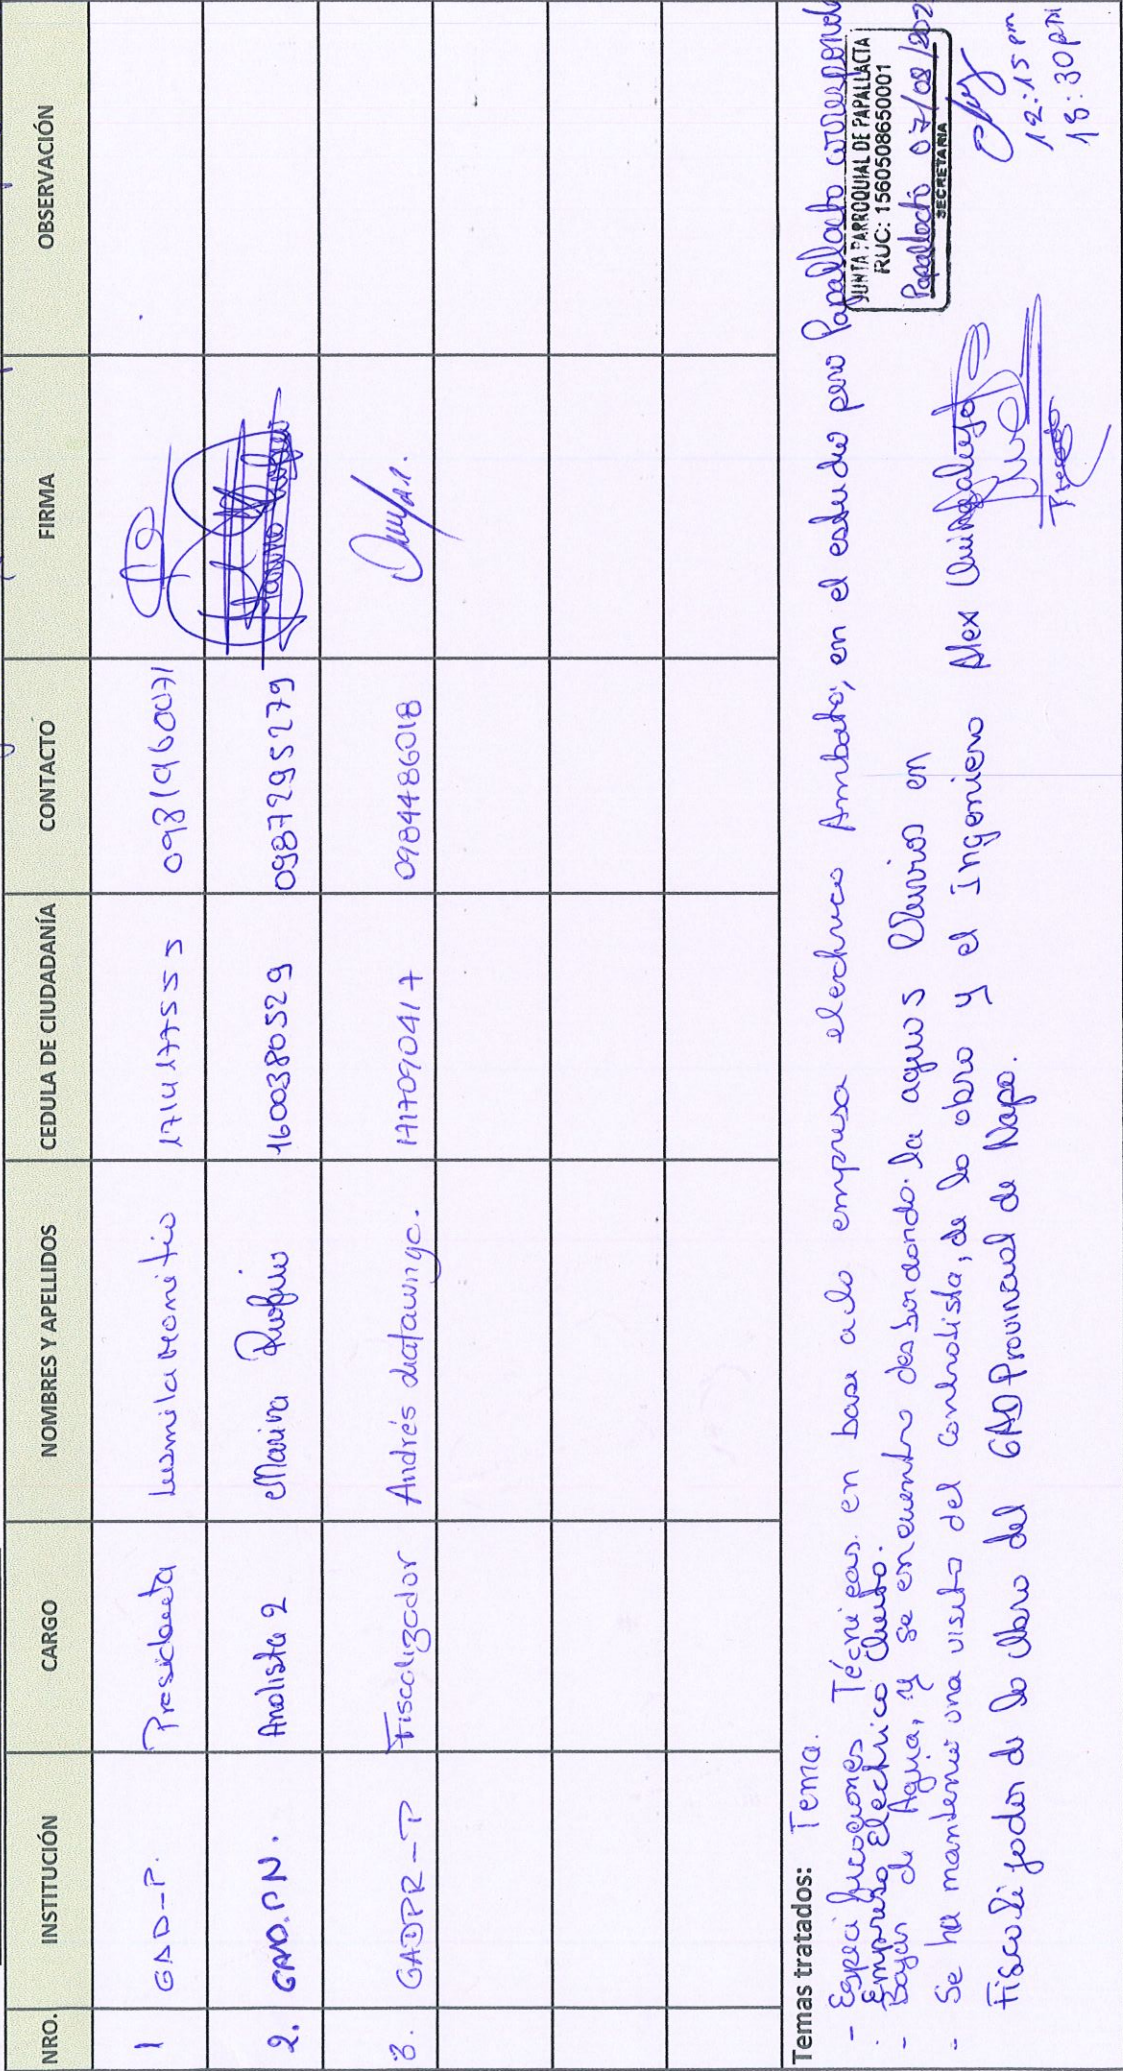 NRO. INSTITUCIÓN CARGO NOMBRES Y APELLIDOS CEDULA DE CIUDADANÍA CONTACTO FIRMA OBSERVACIÓN
1 GAD-P. Presidenta Lusmila Monitio 1714177553 0981960071
2. GAD.PN. Analista 2 Marina Rufino 1600380529 0987295279
3. GADPR-P Fiscalizador Andrés 1717090417 0984486018
Temas tratados: Tema.
- Especificaciones Técnicas. en base a lo empresa electrica Ambato, en el estudio pero Papallacta corresponde
Empresa Electrica Quito.
- Bajan de Agua, y se encuentra desbordando. la aguas lluvias en
- Se ha mantenio una visita del Contratista, de lo obra y el Ingeniero Alex Quingaluisa
Fiscalizador de la Obra del GAD Provincial de Napo.
JUNTA PARROQUIAL DE PAPALLACTA
RUC: 1560508650001
Papallacta 07/08/202
SECRETARIA
12:15 pm